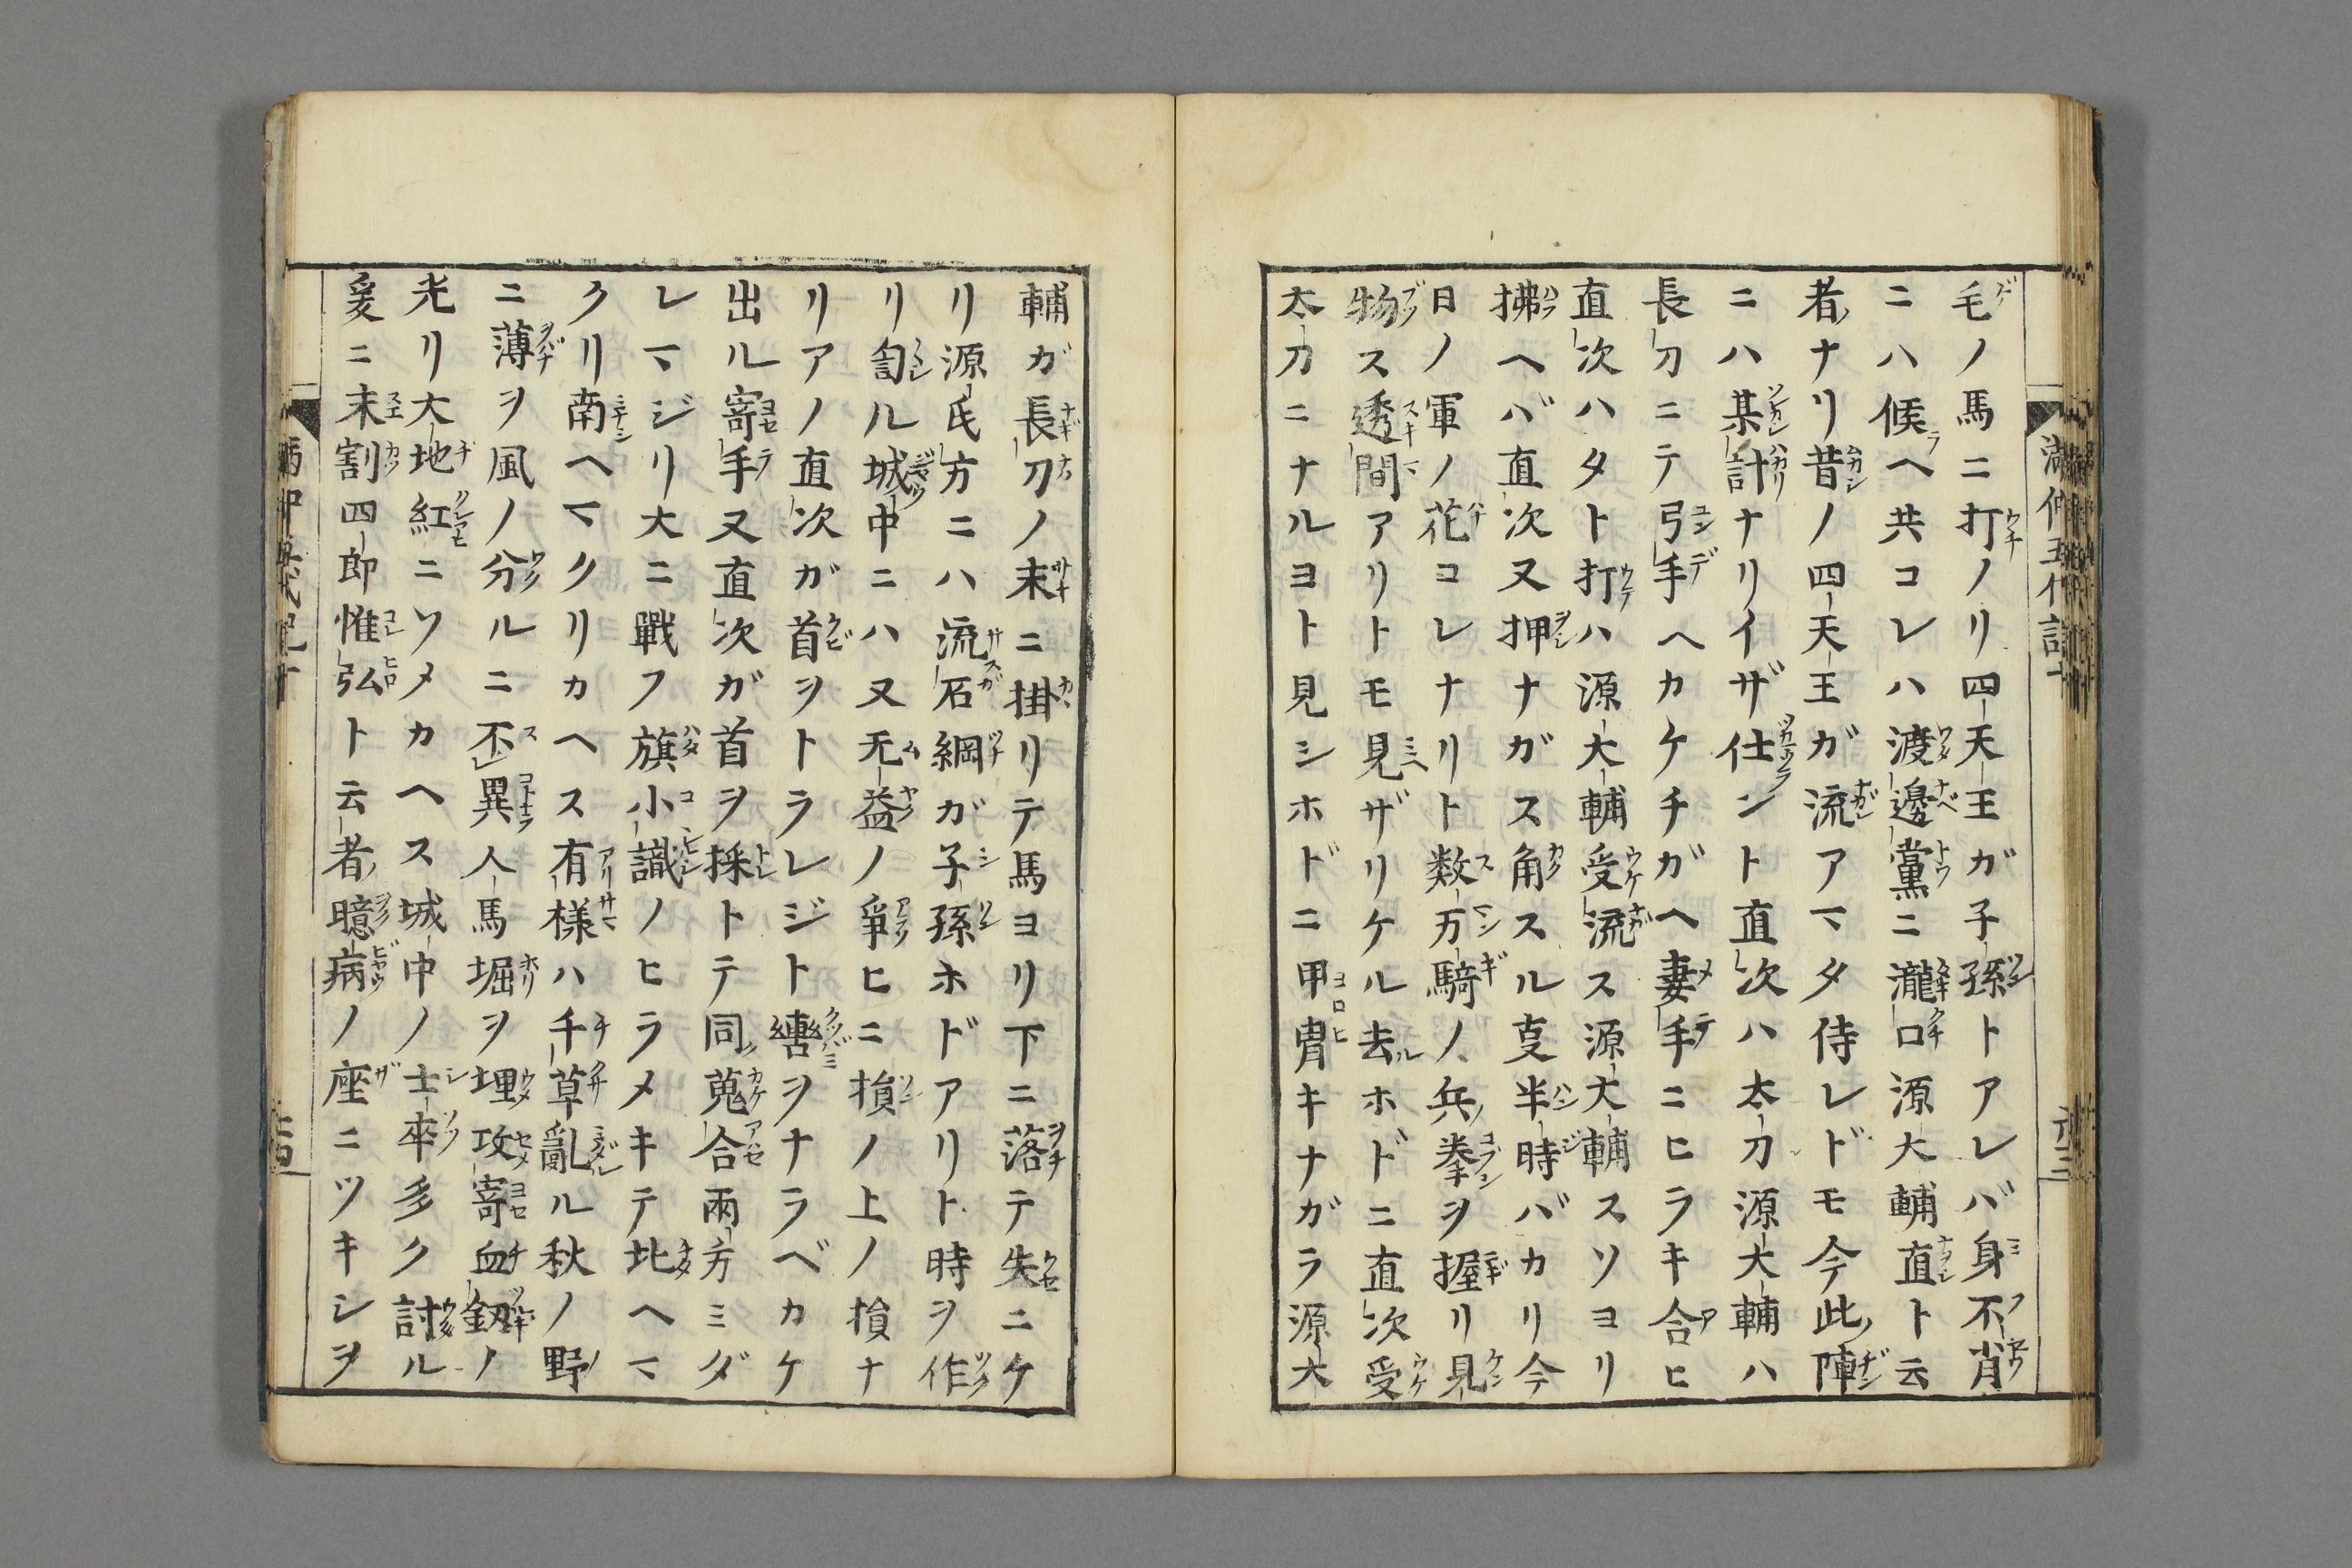 毛ノ馬ニ打ノリ四天王ガ子孫トアレバ身不肖
ニハ候ヘ共コレハ渡邊黨ニ瀧口源大輔直ト云
者ナリ昔ノ四天王ガ流アマタ侍レドモ今此陣
ニハ某計ナリイザ仕ント直次ハ太刀源大輔ハ
長刀ニテ弓手ヘカケチガヘ妻手ニヒラキ合ヒ
直次ハタト打ハ源大輔受流ス源大輔スソヨリ
拂ヘバ直次又押ナガス角スル㕝半時バカリ今
日ノ軍ノ花コレナリト数万騎ノ兵拳ヲ握リ見
物ス透間アリトモ見ザリケル去ホドニ直次受
太刀ニナルヨト見シホドニ甲冑キナガラ源大
輔ガ長刀ノ末ニ掛リテ馬ヨリ下ニ落テ失ニケ
リ源氏方ニハ流石綱ガ子孫ホドアリト時ヲ作
リ訇ル城中ニハ又无益ノ爭ヒニ損ノ上ノ損ナ
リアノ直次ガ首ヲトラレジト轡ヲナラベカケ
出ル寄手又直次ガ首ヲ採トテ同蒐合兩方ミダ
レマジリ大ニ戰フ旗小識ノヒラメキテ北ヘマ
クリ南ヘマクリカヘス有様ハ千草亂ル秋ノ野
ニ薄ヲ風ノ分ルニ不異人馬堀ヲ埋攻寄血釼ノ
光リ大地紅ニソメカヘス城中ノ士卒多ク討ル
爰ニ末割四郎惟弘ト云者臆病ノ座ニツキシヲ